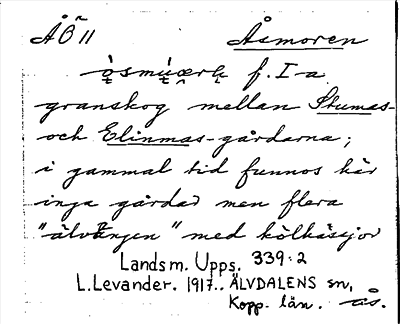 ÅÖ 11 Åsmoren
f. I a
granskog mellan Skumas-
och Elinmas-gårdarna;
i gammal tid funnos här
inga gårdar men flera
"älvängen" med kölkåsjor
Landsm. Upps. 339:2
L. Levander. 1917. ÄLVDALENS sn,
Kopp. län. ås.